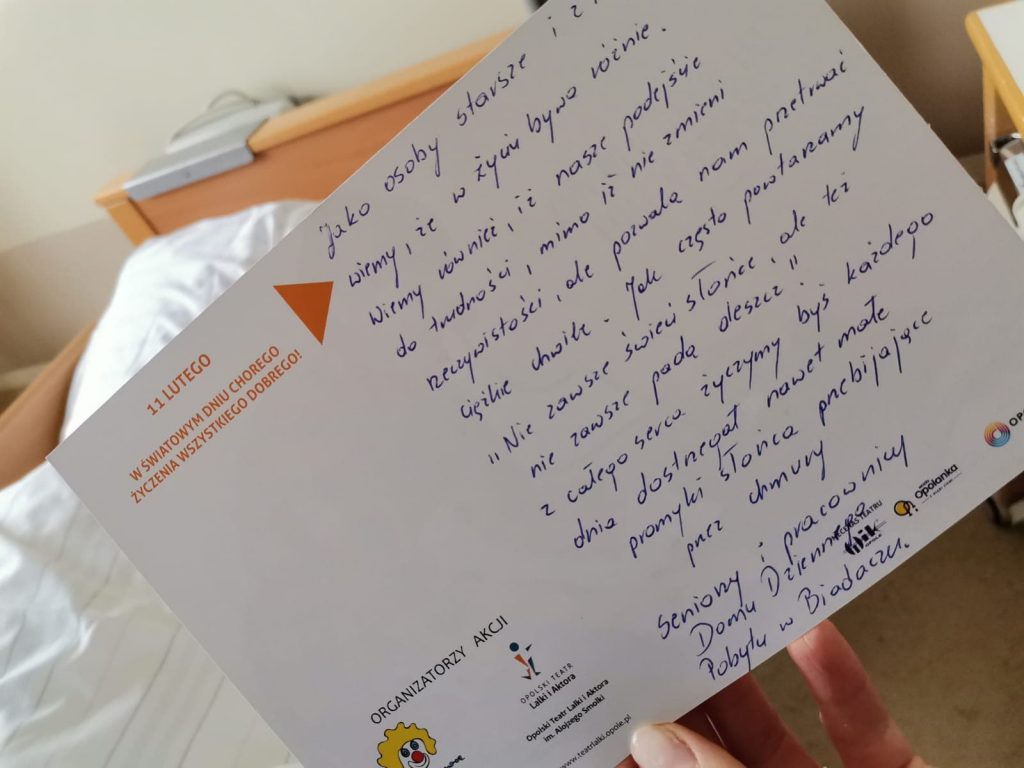 Jako osoby starsze i z
wiemy, że w życiu bywa różnie.
Wiemy również, iż nasze podejście
do trudności, mimo iż nie zmieni
rzeczywistości, ale pozwala nam przetrwać
ciężkie chwile. Jak często powtarzamy
"Nie zawsze świeci słońce, ale też
nie zawsze pada deszcz"
z całego serca życzymy byś każdego
dnia dostrzegał nawet małe
promyki słońca przebijające
przez chmury
Seniorzy i pracownicy
Domu Dziennego
Pobytu w Biadaczu.
11 LUTEGO
W ŚWIATOWYM DNIU CHOREGO
ŻYCZENIA WSZYSTKIEGO DOBREGO!
ORGANIZATORZY AKCJI
OPOLSKI TEATR
Lalki i Aktora
Opolski Teatr Lalki i Aktora
im. Alojzego Smolki
www.teatrlalki.opole.pl
Opolanka
OP